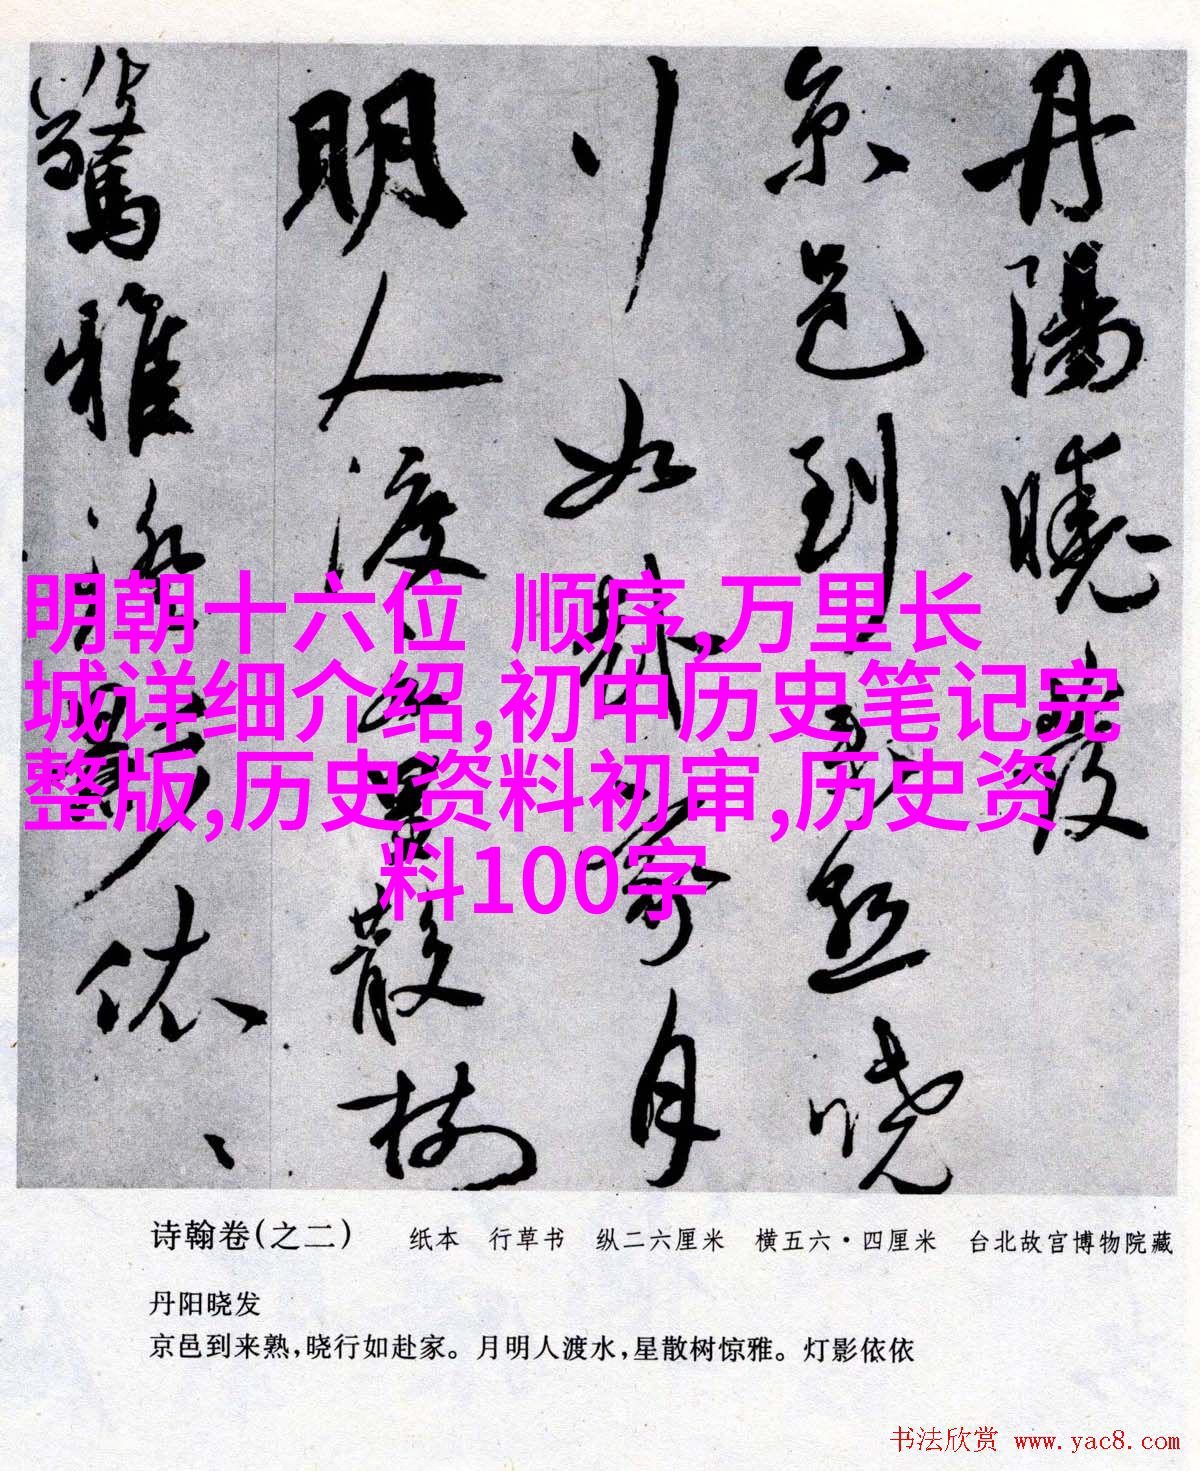 丹陽曉發
京邑到來熟曉
行如赴家月
明人渡水星散樹
驚雅燈影依、
明朝十六位 顺序,万里长
城详细介绍,初中历史笔记完
整版,历史资料初审,历史资
料100字
诗翰卷(之二) 纸本 行草书 纵二六厘米 横五六·四厘米 台北故宫博物院藏
丹阳晓发
京邑到来熟,晓行如赴家。月明人渡水,星散树惊雅。灯影依依
书法欣赏 www.yac8.com